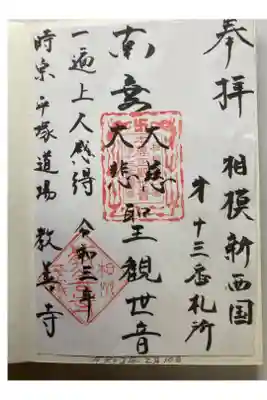 奉拝
相模新西国
才十三番札所
南無
大慈
大悲
聖観世音
一遍上人感得
令和三年
時宗平塚道場
教善寺